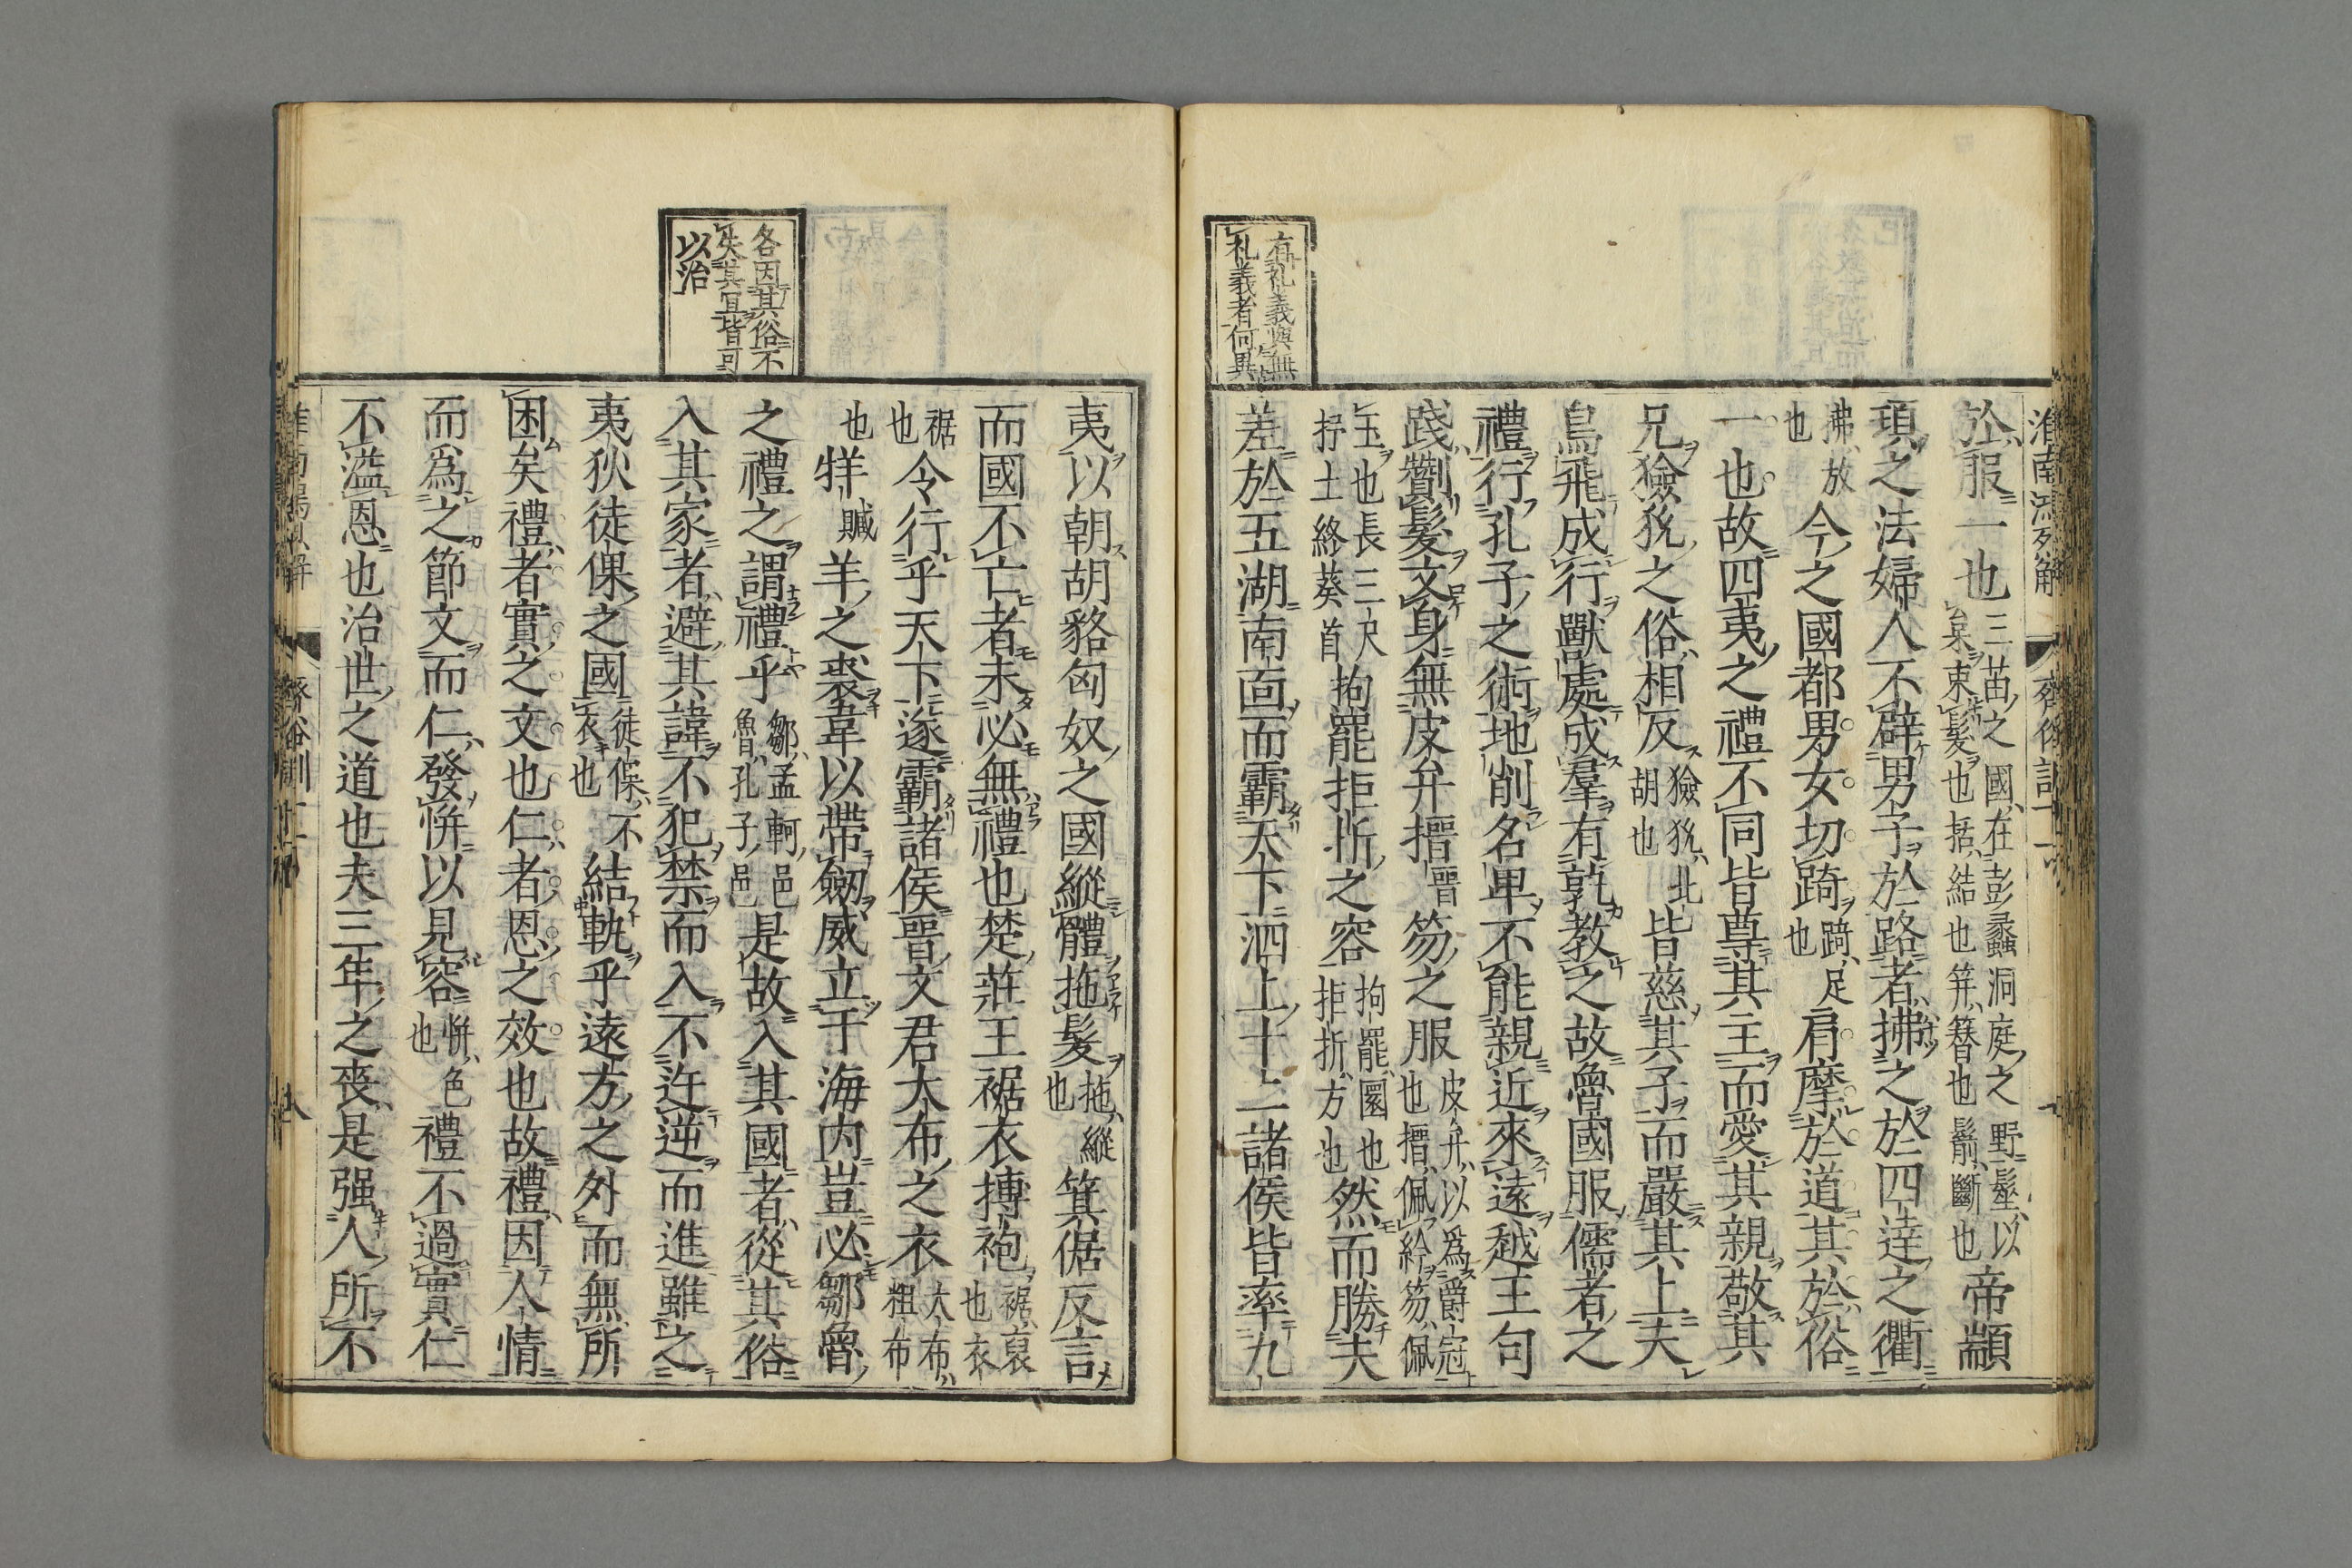 淮南鴻烈解 齊俗訓
於服一也三苗之國在彭蠡洞庭之野髽以枲束髮也括結也笄簪也鬋斷也帝顓
頊之法婦人不辟男子於路者拂之於四達之衢
拂放也今之國都男女切踦踦足也肩摩於道其於俗
一也故四夷之禮不同皆尊其主而愛其親敬其
兄獫狁之俗相反獫狁北胡也皆慈其子而嚴其上夫
鳥飛成行獸處成羣有孰教之故魯國服儒者之
禮行孔子之術地削名卑不能親近來遠越王句
踐劗髮文身無皮弁搢晉笏之服皮弁以爲爵冠也搢佩紟笏佩
玉也長三尺抒土終葵首拘罷拒折之容拘罷圜也拒折方也然而勝夫
差於五湖南面而霸天下泗上十二諸侯皆率九
有礼義與無
礼義者何異
夷以朝胡貉匈奴之國縱體拖髮拖縱也箕倨反言
而國不亡者未必無禮也楚莊王裾衣摶袍裾裒也衣
裾也令行乎天下遂霸諸侯晉文君大布之衣大布粗布
也牂臧羊之裘韋以帶劒威立于海内豈必鄒魯
之禮之謂禮乎鄒孟軻邑魯孔子邑是故入其國者從其俗
入其家者避其諱不犯禁而入不迕逆而進雖之
夷狄徒倮之國徒倮不衣也結軌乎遠方之外而無所
困矣禮者實之文也仁者恩之效也故禮因人情
而爲之節文而仁發恲以見容恲色也禮不過實仁
不溢恩也治世之道也夫三年之喪是强人所不
各因其俗不
失其冝皆可
以治
齊俗訓